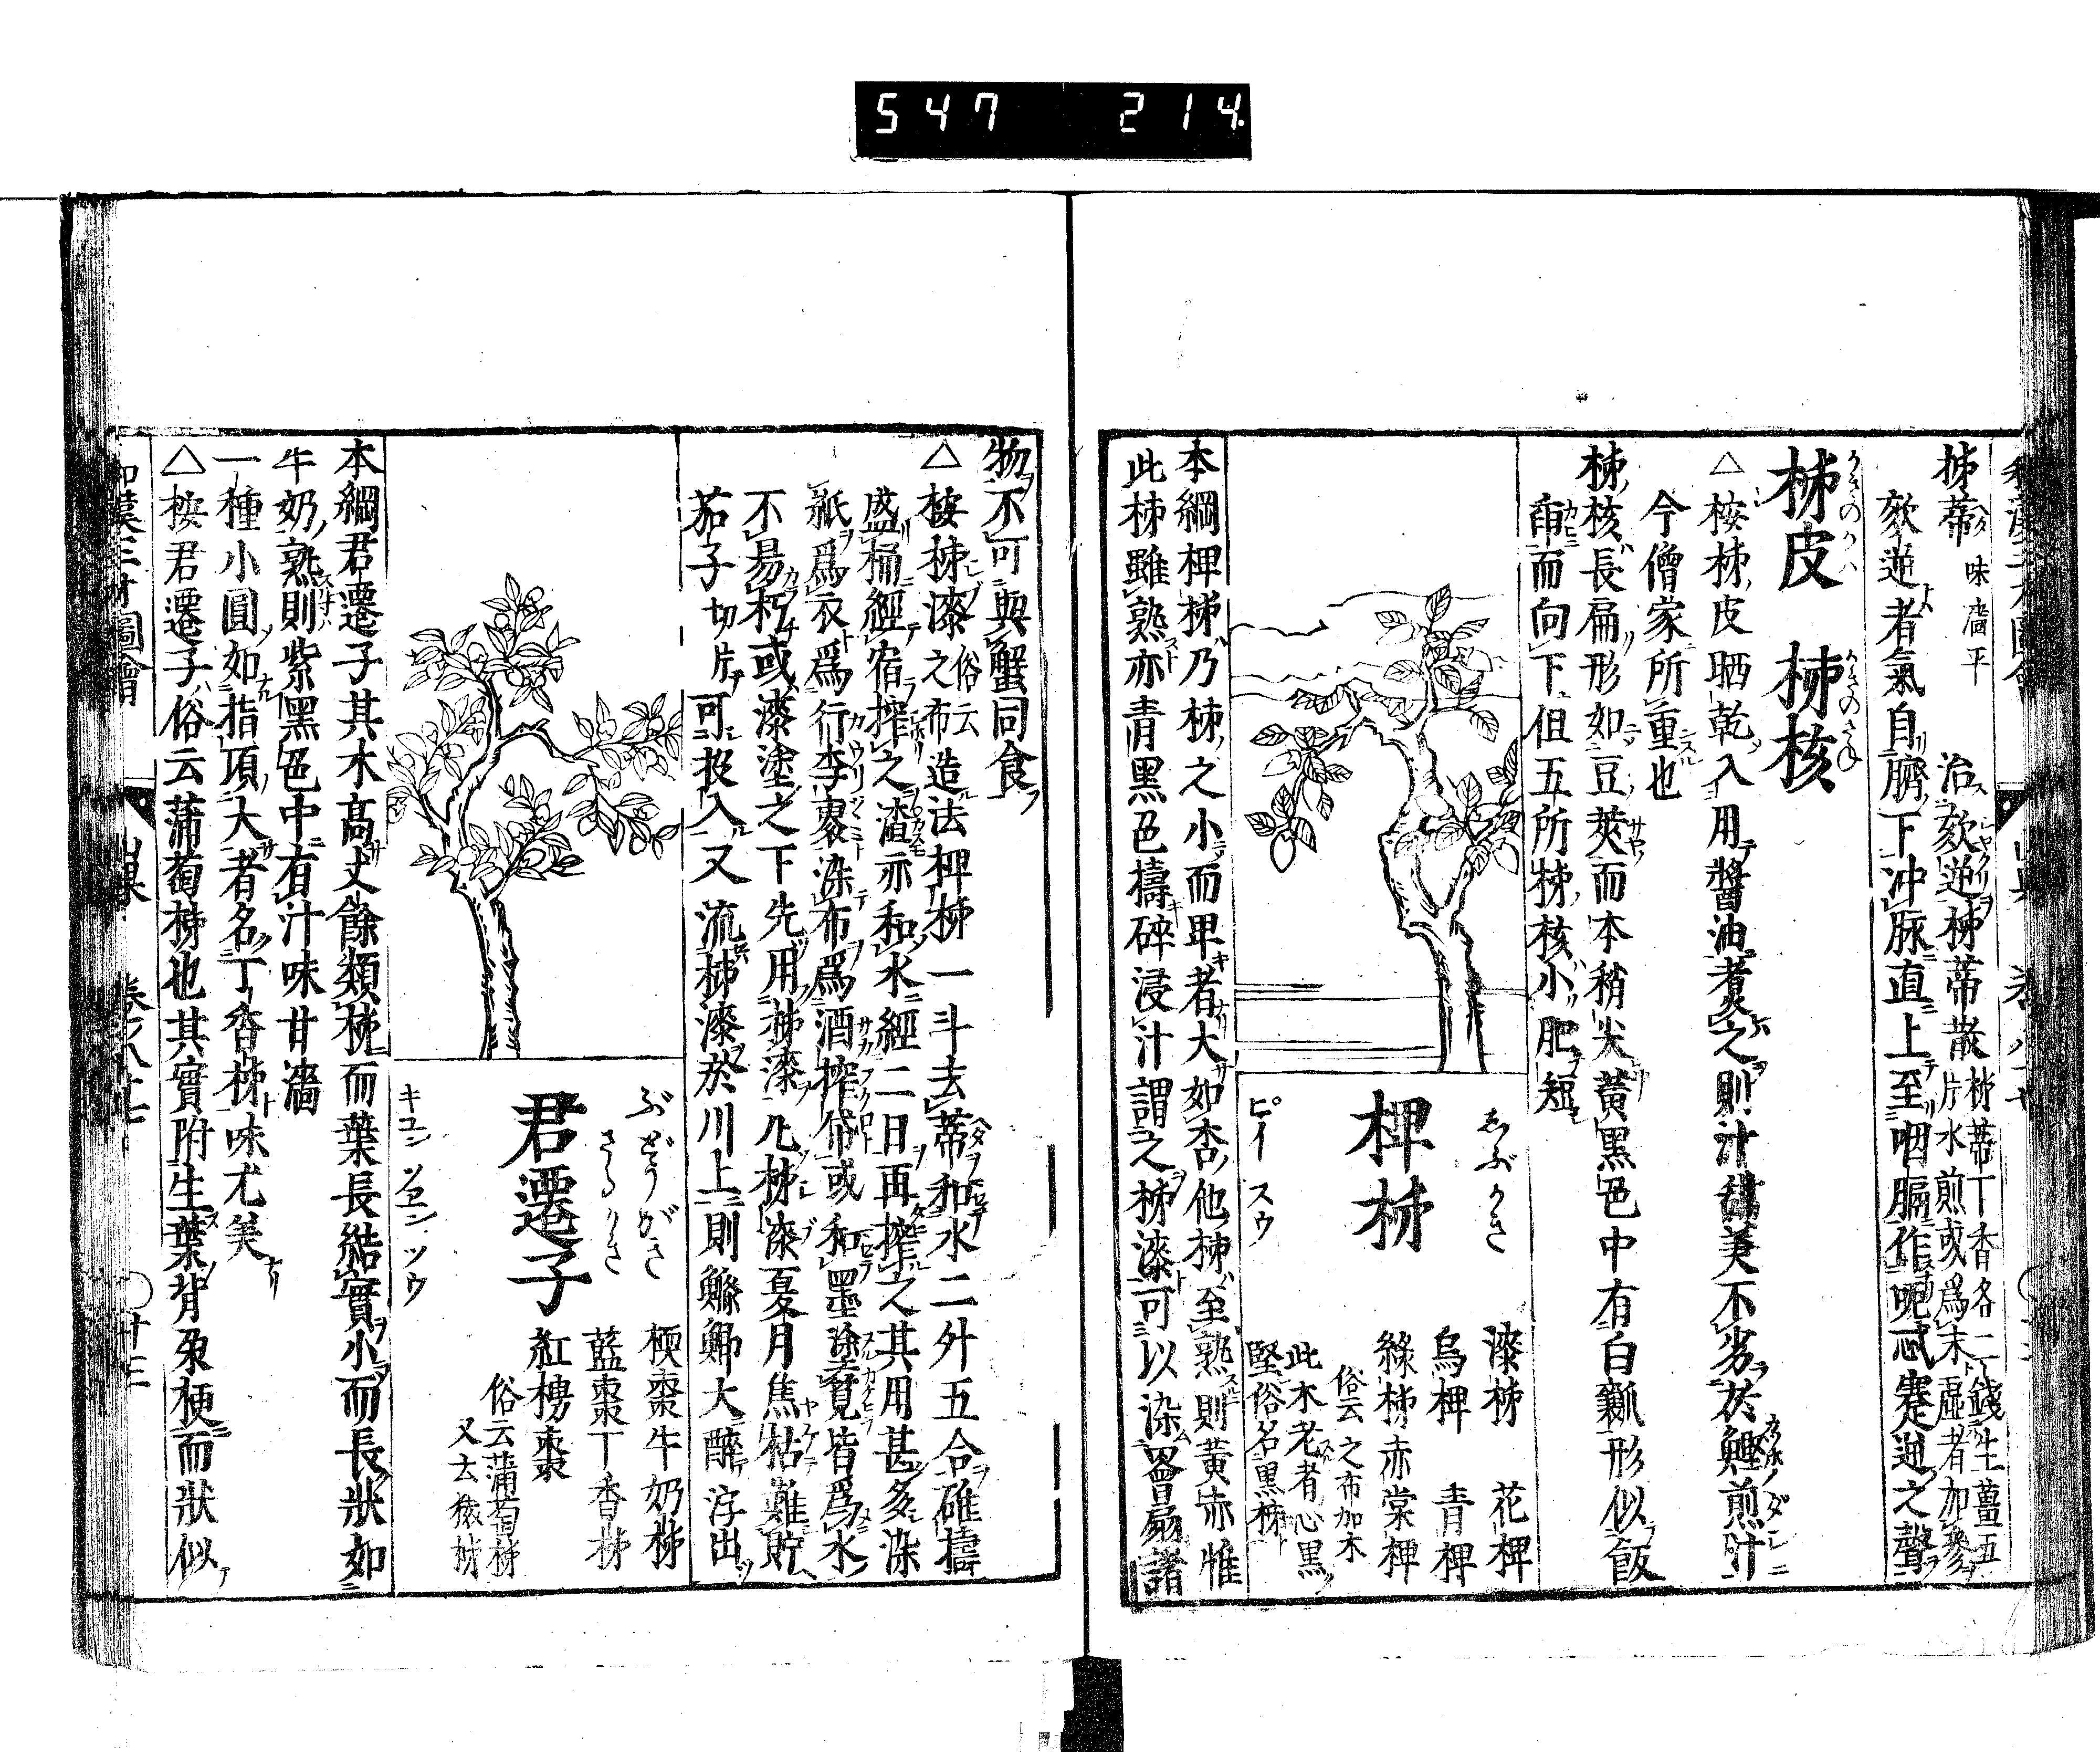 547 214
柹蔕 味濇平 治欬逆柹蔕散 柹蒂丁香各二錢生薑五
片水煎或爲末虛者加人參
欬逆者氣自臍下冲脉直上至咽膈作呃忒蹇逆之聲
柹皮 かきのかハ 柹核 かきのさね
△按柹皮晒乾入用醬油煮之則汁甜美不劣於鰹煎汁
今僧家所重也
柹核長扁形如豆莢而本稍尖黃黑色中有白瓤形似飯
而向下但五所柹核小肥短
椑柹
しぶかき
ピイ スウ
漆柹 花椑
烏椑 青椑
綠柹 赤棠椑
俗云之布加木
此木老者心黒
堅俗名黒柹
本綱椑柹乃柹之小而卑者大如杏他柹至熟則黃赤惟
此柹雖熟亦青黒色擣碎浸汁謂之柹漆可以染罾扇諸
物不可與蟹同食
△按柹漆 俗云之布 造法椑柹一斗去蒂和水二升五合碓擣
盛桶經宿搾之渣亦和水經二日再搾之其用甚多染
紙爲衣爲行李裹染布爲酒搾帒或和墨塗筧皆爲水
不易朽或漆塗之下先用柹漆凡柹漆夏月焦枯難貯
茄子切片可投入又流柹漆於川上則鰷鯽大醉浮出
君遷子
ぶどうがき
さるがき
キユン ツヱン ツウ
㮕棗 牛奶柹
藍棗 丁香柹
紅梬棗
俗云蒲萄柹
又云猿柹
本綱君遷子其木高丈餘類柹而葉長結實小而長狀如
牛奶熟則紫黑色中有汁味甘濇
一種小圓如指頂大者名丁香柹味尤美
△按君遷子俗云蒲萄柹也其實附生葉背朶梗而狀似
和漢三才圖會 山果 卷之八十七 〇十三